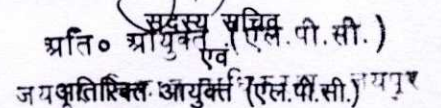 सदस्य सचिव
अति० आयुक्त (एल.पी.सी.)
एवं
अतिरिक्त आयुक्त (एल.पी.सी.) जयपुर